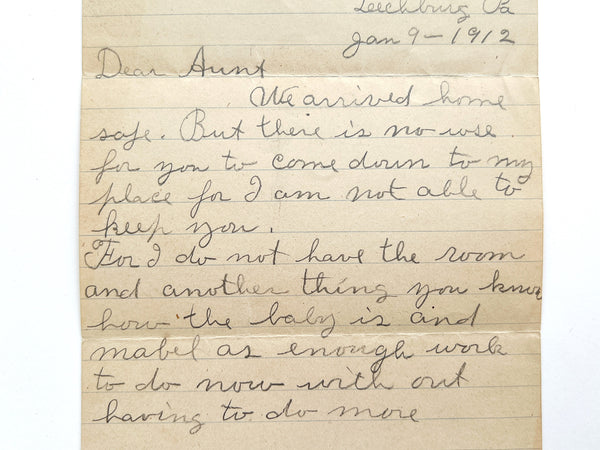 Leechburg Pa
Jan 9-1912
Dear Aunt
We arrived home
safe. But there is no use
for you to come down to my
place for I am not able to
keep you.
For I do not have the room
and another thing you know
how the baby is and
mabel as enough work
to do now with out
having to do more